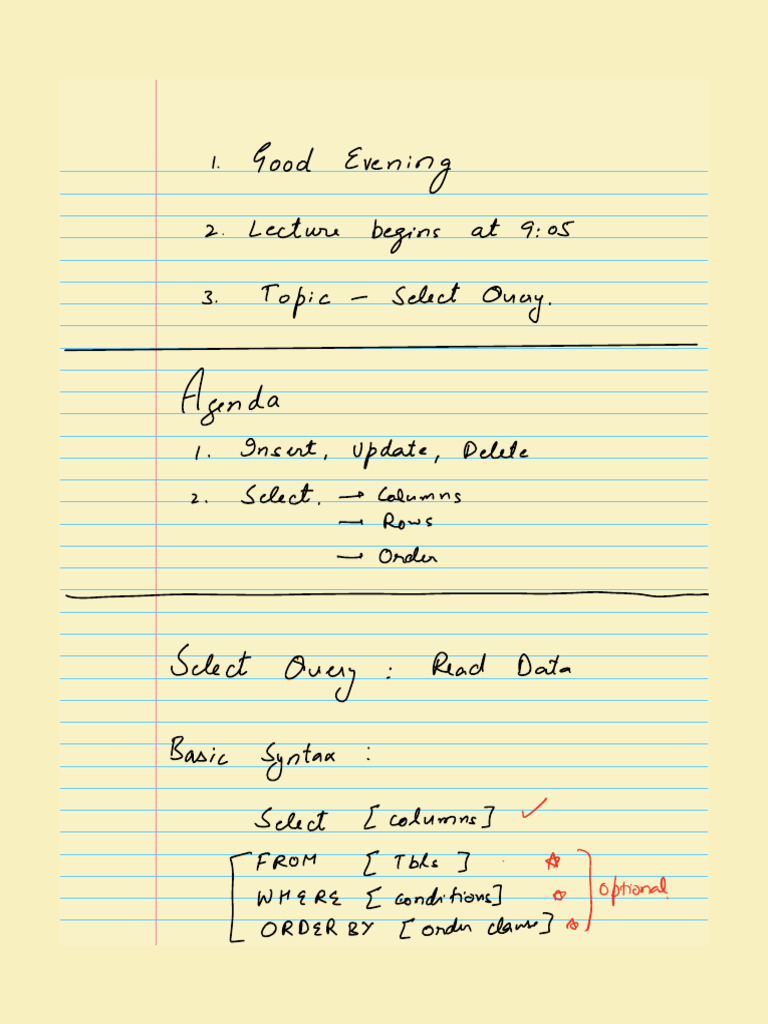 1. Good Evening
2. Lecture begins at 9:05
3. Topic – Select Query.
Agenda
1. Insert, Update, Delete
2. Select. → Columns
→ Rows
→ Order
Select Query : Read Data
Basic Syntax :
Select [columns] ✓
FROM [Tbls]
WHERE [conditions]
ORDER BY [order clause]
Optional